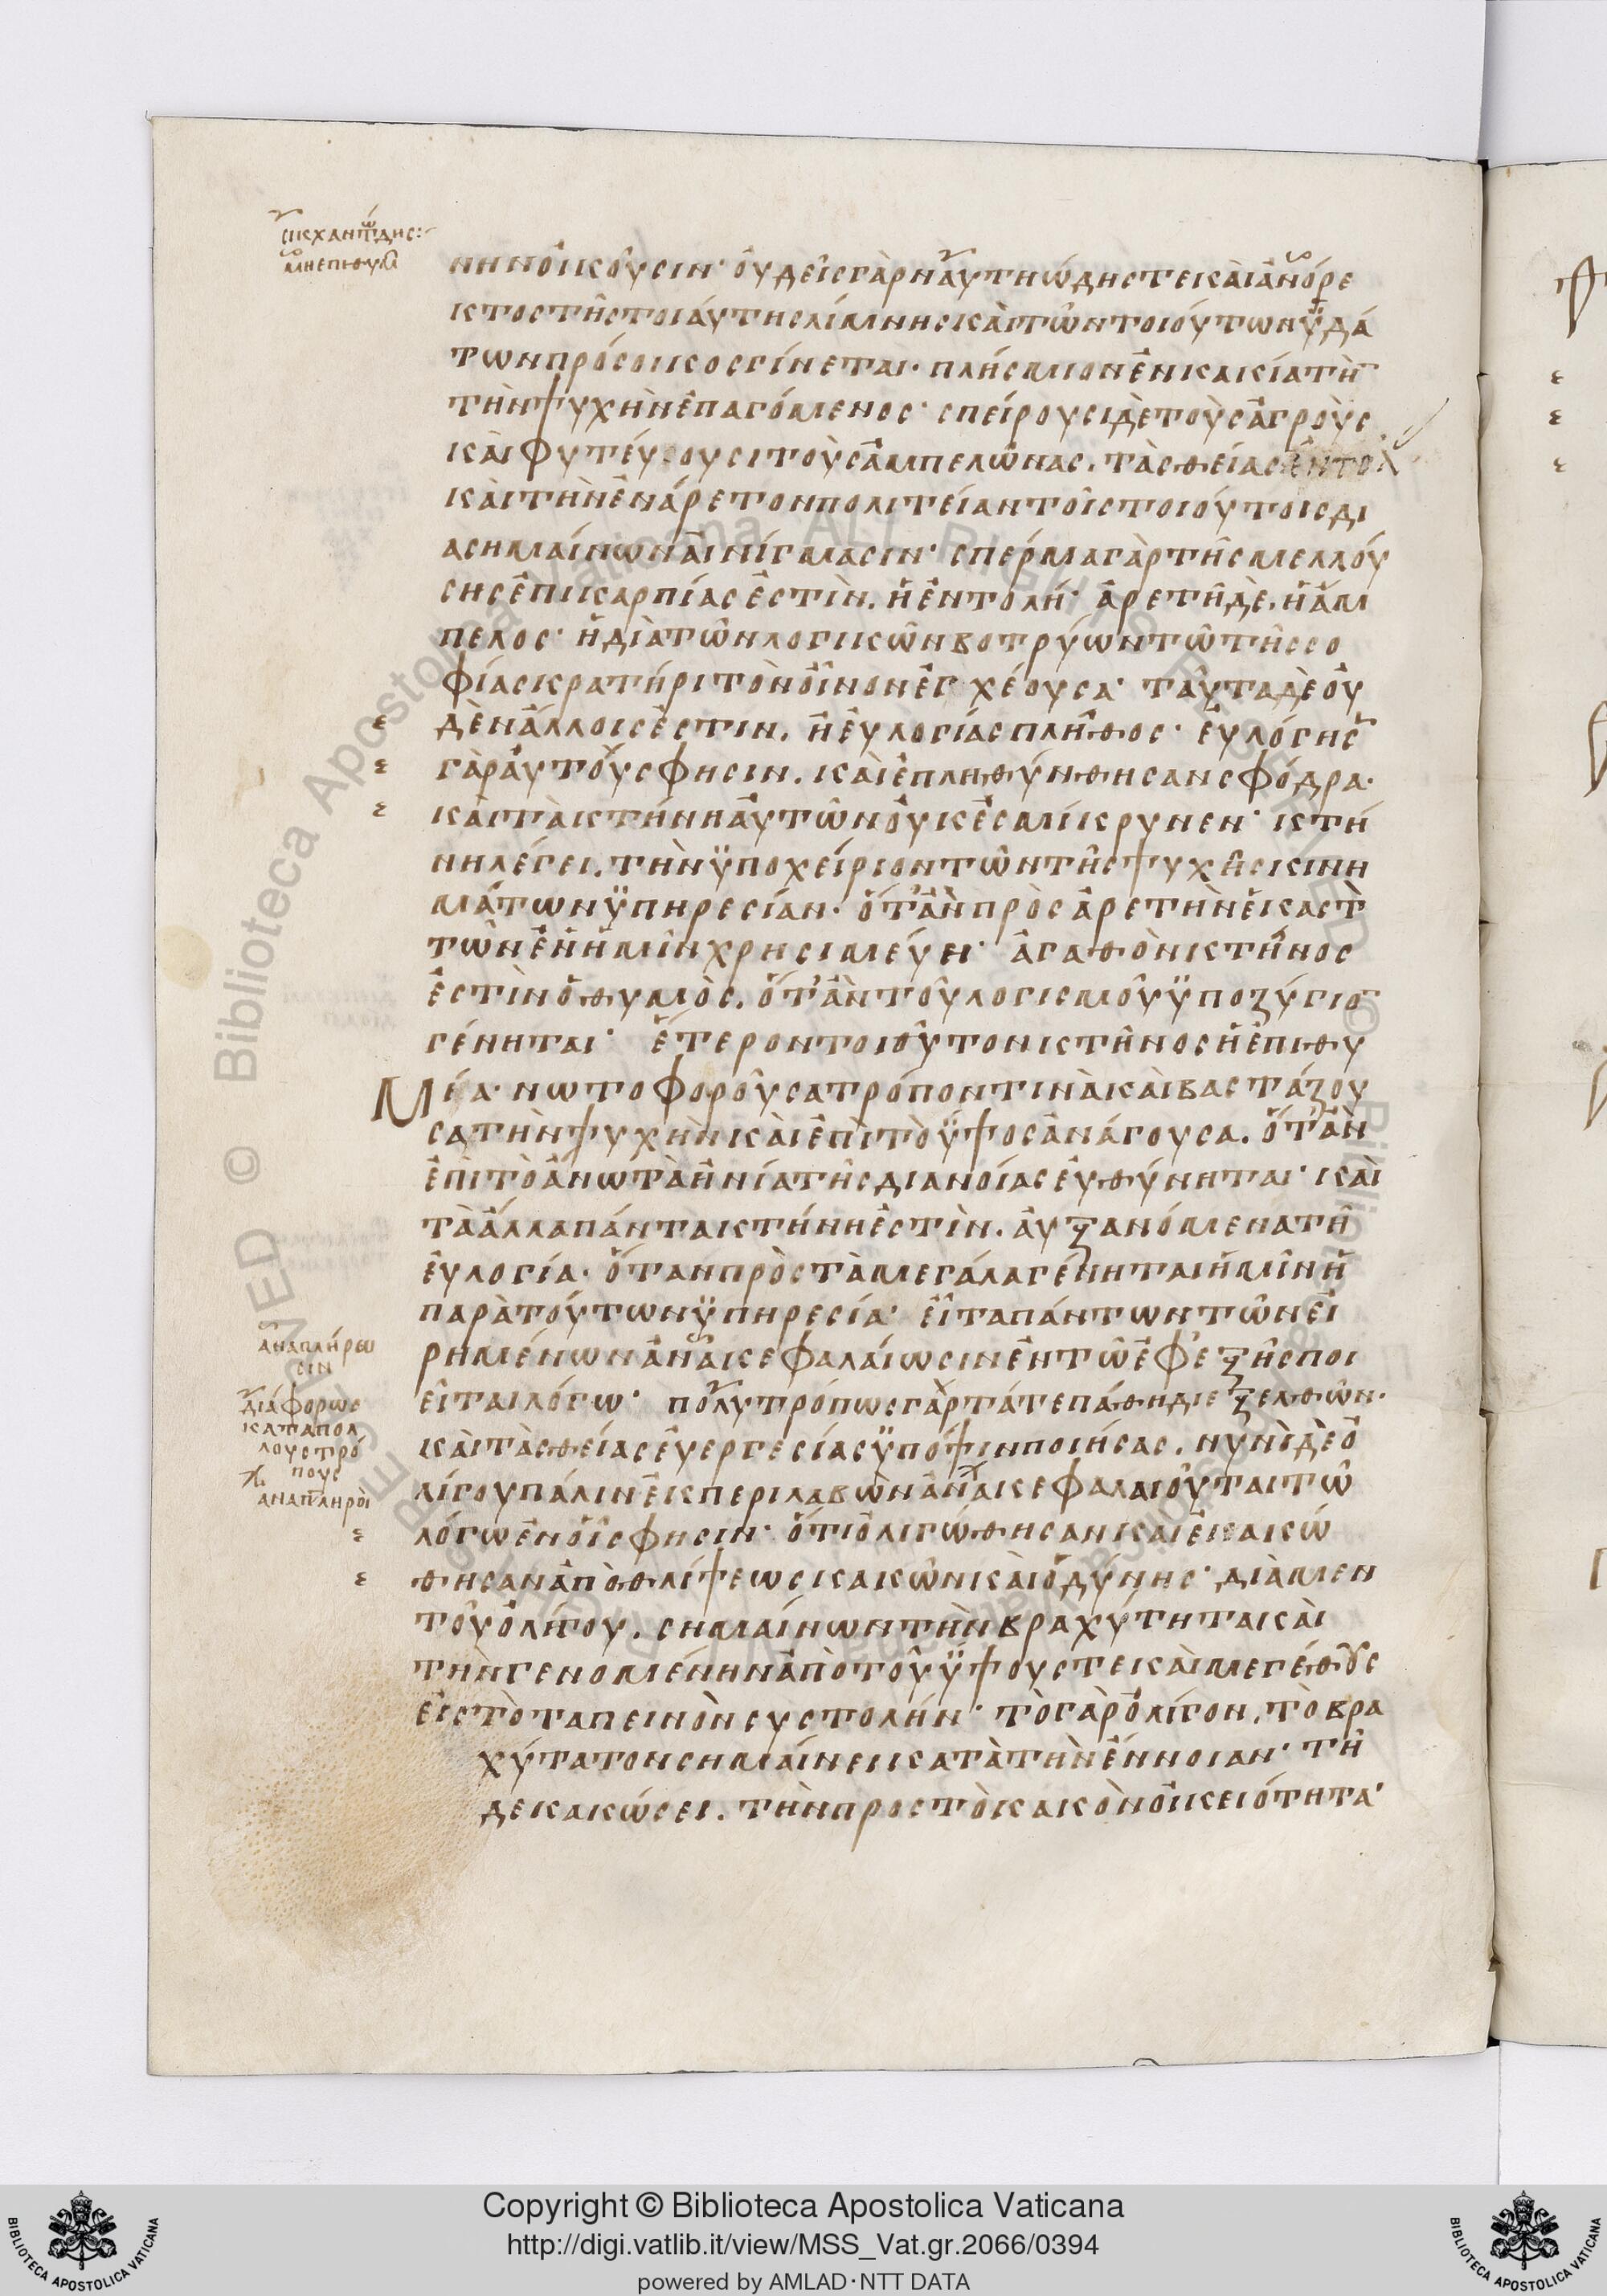 σικχαντώδης:
μὴ ἐπιθυμῶ
νην οἰκοῦσιν· οὐδεὶς γὰρ ναυτηώδης τε καὶ ἀνόρε
κτος τῆς τοιαύτης λίμνης καὶ τῶν τοιούτων ὑδά
των πρόσοικος γίνεται· πλήσμιον ἐν κακία τὴ
τὴν ψυχὴν ἐπαγόμενος· σπείρουσι δὲ τοὺς ἀγροὺς
καὶ φυτεύουσι τοὺς ἀμπελῶνας. τὰς θείας ἐντολ
καὶ τὴν ἐνάρετον πολιτείαν τοῖς τοιούτοις δι
ασημαίνων αἰνίγμασιν· σπέρμα γὰρ τῆς μελλού
σης ἐπικαρπίας ἐστὶν. ἡ ἐντολή· ἀρετὴ δὲ, ἡ ἄμ
πελος· ἡ διὰ τῶν λογικῶν βοτρύων τῶ τῆς σο
φίας κρατῆρι τὸν οἶνον ἐγχέουσα· ταῦτα δὲ οὐ
δὲν ἄλλο ἐστιν. ἢ εὐλογίας πλῆθος· εὐλόγησ
γὰρ αὐτοὺς φησιν. καὶ ἐπληθύνθησαν σφόδρα·
καὶ τὰ κτήνη αὐτῶν οὐκ ἐσμίκρυνεν· κτή
νη λέγει. τὴν ὑποχείριον τῶν τῆς ψυχῆς κινη
μάτων ὑπηρεσίαν· ὅτ' ἂν πρὸς ἀρετὴν ἕκαστ
τῶν ἐν ἡμῖν χρησιμεύει· ἀγαθὸν κτῆνος
ἐστὶν ὁ θυμὸς. ὅτ' ἂν τοῦ λογισμοῦ ὑποζύγιο
γένηται· ἕτερον τοιοῦτον κτῆνος ἡ ἐπιθυ
Μία· νωτοφοροῦσα τρόπον τινὰ καὶ βαστάζου
σα τὴν ψυχὴν καὶ ἐπὶ τὸ ὕψος ἀνάγουσα. ὅτ' ἂν
ἐπὶ τὸ ἄνω τὰ ἡνία τῆς διανοίας εὐθύνηται· καὶ
τὰ ἄλλα πάντα κτήνη ἐστὶν. αὐξανόμενα τῆ
εὐλογία· ὅταν πρὸς τὰ μεγάλα γένηται ἡμῖν ἡ
παρὰ τούτων ὑπηρεσία· εἶτα πάντων τῶν εἰ
ἀναπλήρω
σιν
ρημένων ἀνακεφαλαίωσιν ἐν τῶ ἐφεξῆς ποι
διάφορως
κατὰ πολ
λους τρό
πους
εῖται λόγω· πολυτρόπως γὰρ τά τε πάθη διεξελθών·
καὶ τὰς θείας εὐεργεσίας ὑπόψιν ποιήσας. νυνὶ δὲ ὀ
ἀναπληροῖ
λίγου πάλιν ἐκπεριλαβὼν ἀνακεφαλαιοῦται τῶ
λόγω ἐν οἷς φησιν· ὅτι ὀλιγώθησαν καὶ ἐκακώ
θησαν ἀπὸ θλίψεως κακῶν καὶ ὀδύνης· διὰ μεν
τοῦ ὀλίγου. σημαίνων τὴν βραχύτητα καὶ
τὴν γενομένην ἀπὸ τοῦ ὕψους τε καὶ μεγέθους
εἰς τὸ ταπεινὸν συστολήν· τὸ γὰρ ὀλίγον, τὸ βρα
χύτατον σημαίνει κατὰ τὴν ἔννοιαν· τῆ
δε κακώσει. τὴν πρὸς τὸ κακὸν οἰκειότητα·
Copyright © Biblioteca Apostolica Vaticana
http://digi.vatlib.it/view/MSS_Vat.gr.2066/0394
powered by AMLAD·NTT DATA